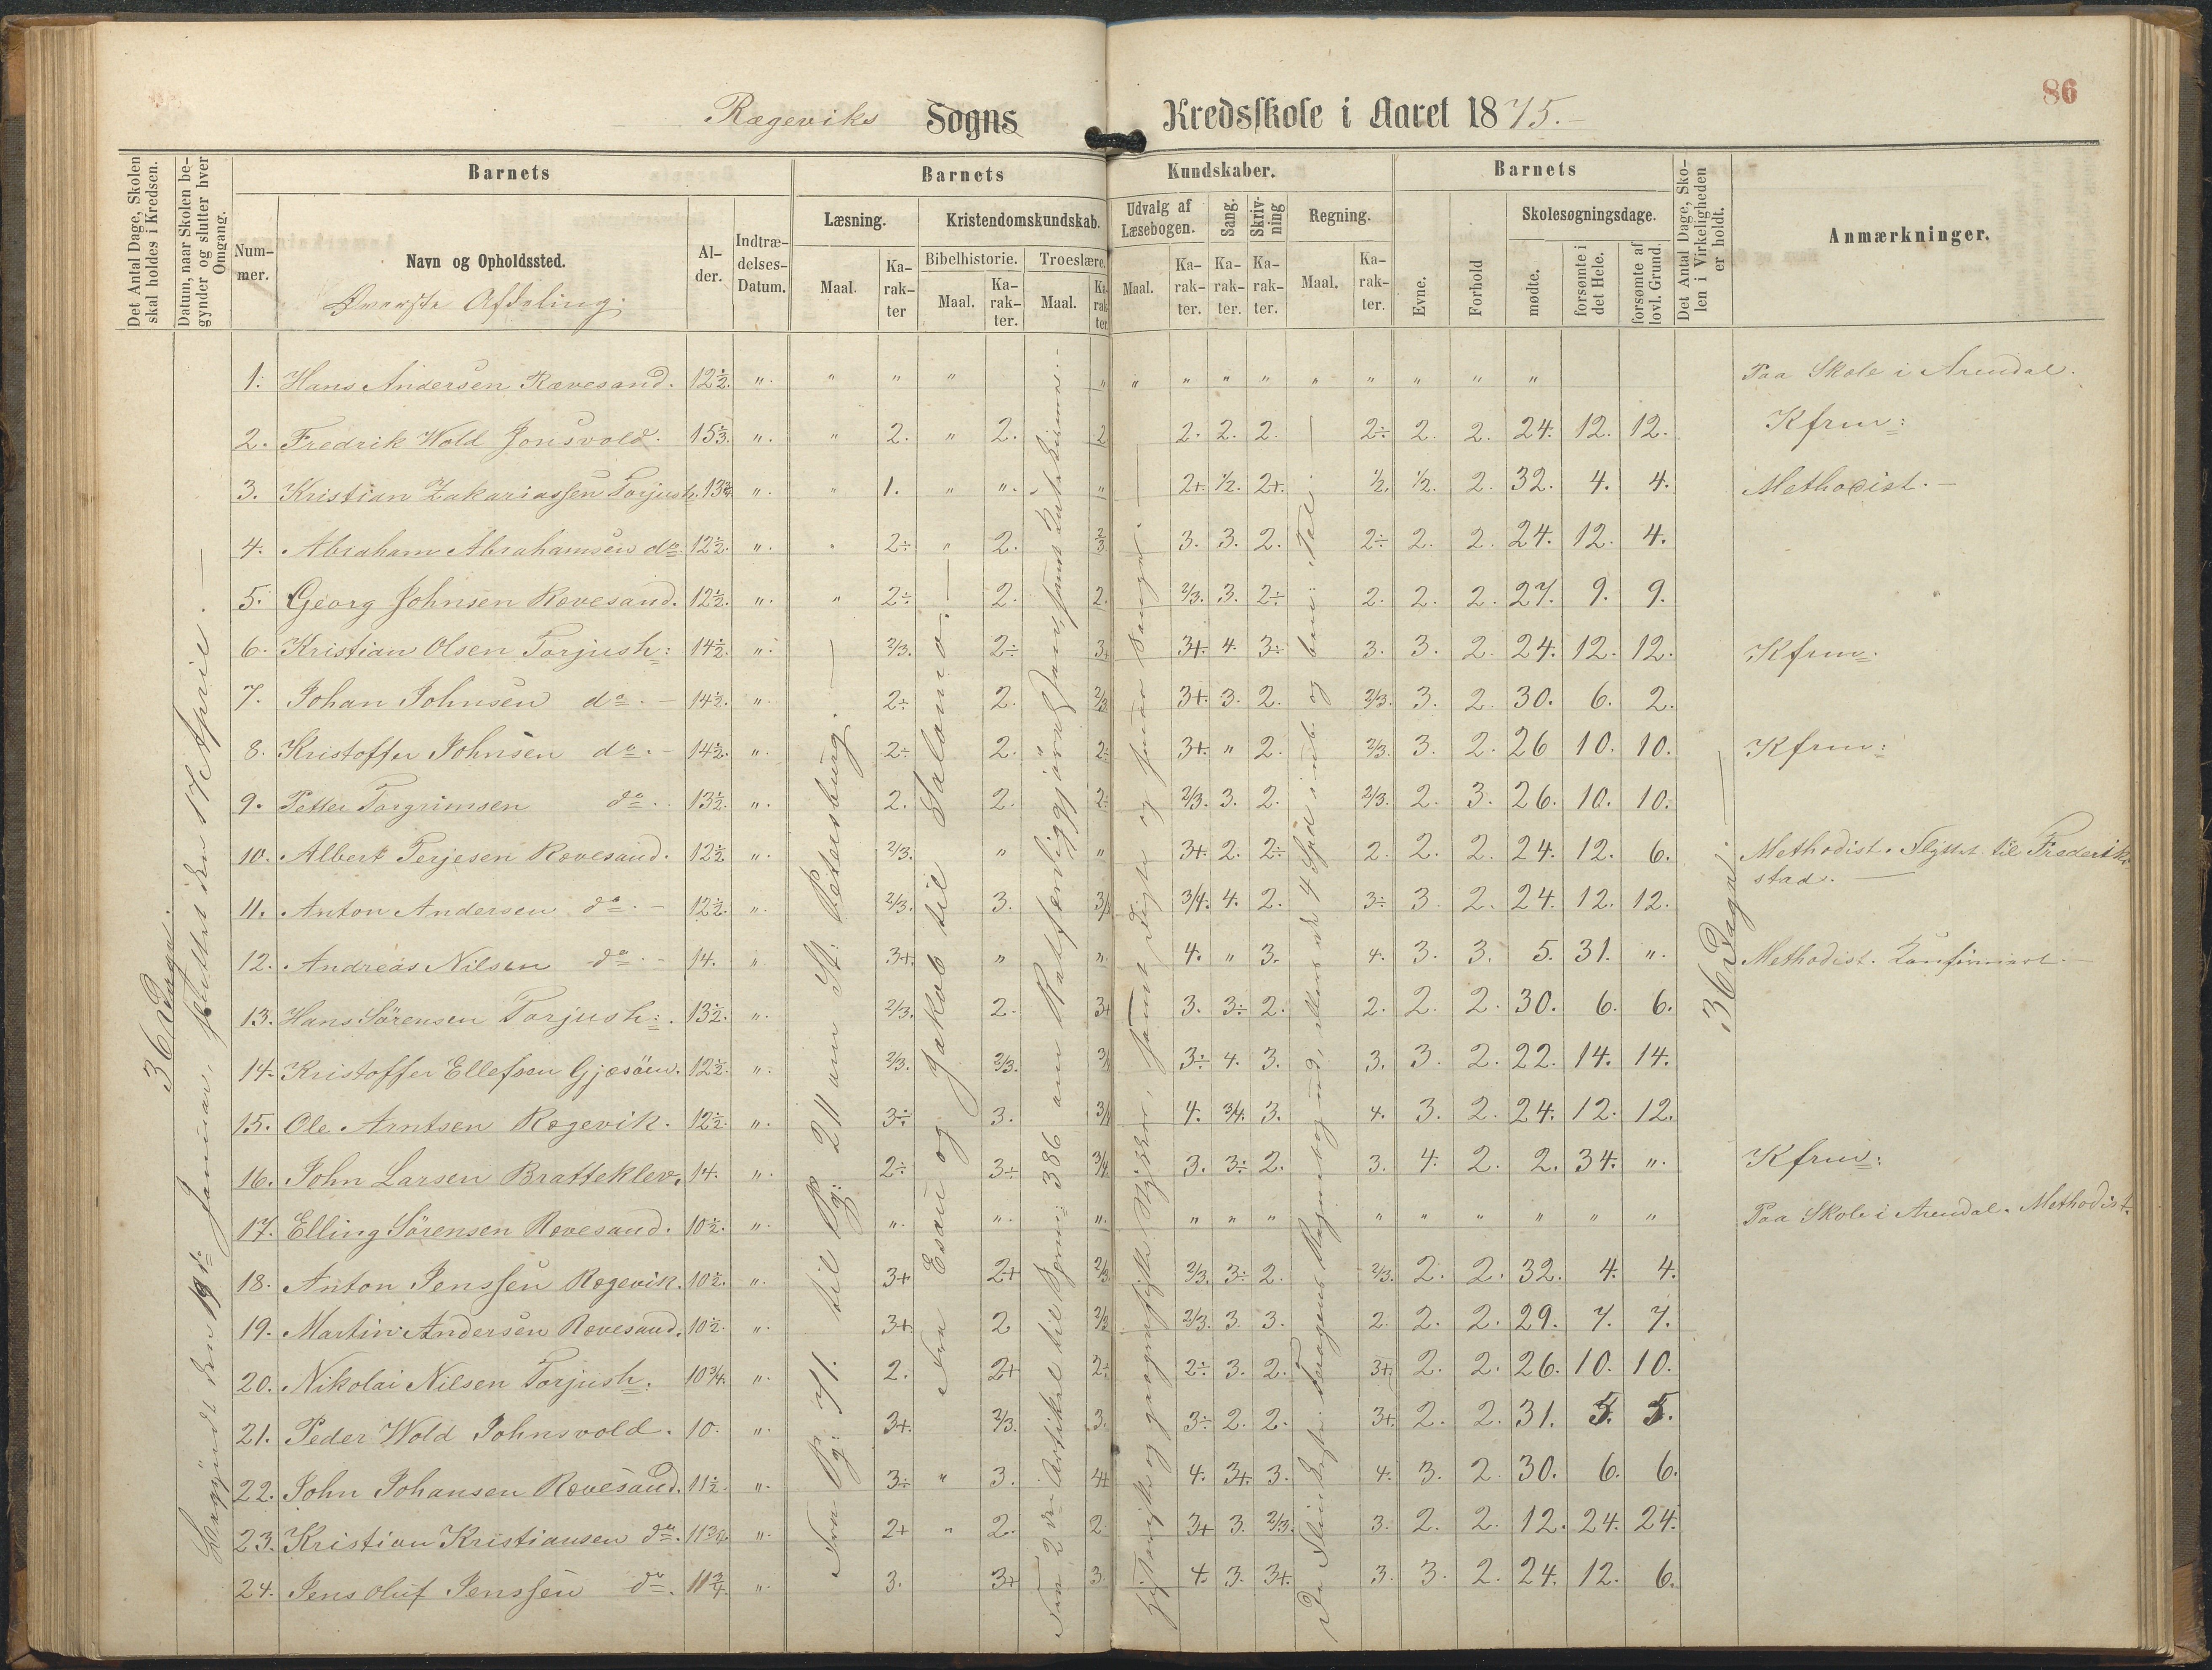 86
Rægeviks Sogns Kredsskole i Aaret 1875.
Det Antal Dage, Skolen skal holdes i Kredsen.
Datum, naar Skolen begynder og slutter hver Omgang.
Barnets
Barnets
Kundskaber.
Barnets
Det Antal Dage, Skolen i Virkeligheden er holdt.
Anmærkninger.
Nummer.
Navn og Opholdssted.
Alder.
Indtrædelses-Datum.
Læsning.
Kristendomskundskab.
Udvalg af Læsebogen.
Sang.
Skrivning
Regning.
Evne.
Forhold
Skolesøgningsdage.
Bibelhistorie.
Troeslære.
mødte.
forsømte i det Hele.
forsømte af lovl. Grund.
Maal.
Karakter
Maal.
Karakter.
Maal.
Karakter
Maal.
Karakter.
Karakter.
Karakter.
Maal.
Karakter.
Øverste Afdeling.
36 Dage.
Begyndt den 19de Januar, sluttet den 17 April.
Fra Pg: 71. til Pg: 211 ann St: Petersburg.
Fra Esau og Jakob til Salomo.
Fra 2den Artikel til Spm: 386 om Retfærdiggjørelsen,
36 Dage.
1. Hans Andersen Rævesand. 12½. " " " " " " " " " " " " " " Paa Skole i Arendal.
2. Fredrik Wold Jonsvold. 15⅓. " " 2. " 2. 2 2. 2. 2. 2÷ 2. 2. 24. 12. 12. Kfrm:
3. Kristian Zakariassen Torjush. 13¾. " " 1. " " " 2+. ½. 2+. ½. ½. 2. 32. 4. 4. Methodist.
4. Abraham Abrahamsen do. 12½. " " 2÷ " 2. ⅔ 3. 3. 2. 2÷ 2. 2. 24. 12. 4.
5. Georg Johnsen Rævesand. 12½. " " 2÷ 2. 2. 2/3. 3. 2÷ 2. 2. 2. 27. 9. 9.
6. Kristian Olsen Torjush: 14½. " 2/3. 2÷ 3+ 3+. 4. 3÷ 3. 3. 2. 24. 12. 12. Kfrm.
7. Johan Johnsen do. 14½. " 2÷ 2. 2/3 3+. 3. 2. 2/3. 3. 2. 30. 6. 2.
8. Kristoffer Johnsen do. 14½. " 2÷ 2. 2÷ 3+. " 2. 2/3. 3. 2. 26 10. 10. Kfrm:
9. Petter Torgrimsen do. 13½. " 2. 2. 2÷ 2/3. 3. 2. 2/3. 2. 3. 26. 10. 10.
10. Albert Terjesen Rævesand. 12½. " 2/3. " " 3+. 2. 2÷ 2. 2. 2. 24. 12. 6. Methodist. Flyttet til Frederikstad.
11. Anton Andersen do. 12½. " 2/3. 3. 3/4 3/4. 4. 2. 3÷ 3. 2. 24. 12. 12.
12. Andreas Nilsen do. 14. " 3+. " " 4. " 3. 4. 3. 3. 5. 31. " Methodist. Konfirmeret.
13. Hans Sörensen Torjush: 13½. " 2/3. 2. 3+ 3. 3÷ 2. 2. 2. 2. 30. 6. 6.
14. Kristoffer Ellefsen Gjæsöen. 12½. " 2/3. 2/3. 3/4 3÷ 4. 3. 3. 3. 2. 22. 14. 14.
15. Ole Arntsen Rægevik. 12½. " 3÷ 3. 3/4 4. 3/4. 3. 4. 3. 2. 24. 12. 12.
16. John Larsen Bratteklev. 14. " 2÷ 3÷ 3/4 3. 3÷ 2. 3. 4. 2. 2. 34. " Kfrm:
17. Elling Sörensen Rævesand. 10½. " " " " " " " " " " " " " Paa Skole i Arendal. Methodist.
18. Anton Jenssen Rægevik. 10½. " 3+ 2+ 2/3 2/3. 3÷ 2. 2/3. 2. 2. 32. 4. 4.
19. Martin Andersen Rævesand. 10½. " 3+. 2 2/3 2/3. 3. 3. 2. 2. 2. 29. 7. 7.
20. Nikolai Nilsen Torjush. 10¾. " 2. 2+ 2÷ 2÷ 3. 2. 3+ 2. 2. 26. 10. 10.
21. Peder Wold Johnsvold. 10. " 3+. 2/3. 3. 3÷ 2. 2. 3+. 2. 2. 31. 5. 5.
22. John Johansen Rævesand. 11½. " 3÷ " 3. 4+ 4. 3+. 3. 4. 3. 2. 30. 6. 6.
23. Kristian Kristiansen do. 11¾. " 2+ " 2. 2. 3+ 3. 2/3. 3. 2. 2. 12. 24. 24.
24. Jens Oluf Jenssen do. 11¾. " 3. 3+ 3. 4. 3. 3+. 3. 3. 2. 24. 12. 6.